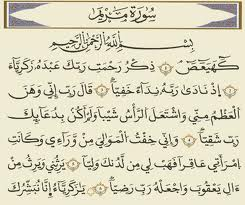 سُورَةُ مَرْيَمَ
بِسْمِ ٱللَّهِ ٱلرَّحْمَٰنِ ٱلرَّحِيمِ
كٓهيعٓصٓ ١ ذِكْرُ رَحْمَتِ رَبِّكَ عَبْدَهُۥ زَكَرِيَّآ
٢ إِذْ نَادَىٰ رَبَّهُۥ نِدَآءً خَفِيًّا ٣ قَالَ رَبِّ إِنِّى وَهَنَ
ٱلْعَظْمُ مِنِّى وَٱشْتَعَلَ ٱلرَّأْسُ شَيْبًا وَلَمْ أَكُنۢ بِدُعَآئِكَ
رَبِّ شَقِيًّا ٤ وَإِنِّى خِفْتُ ٱلْمَوَٰلِىَ مِن وَرَآءِى وَكَانَتِ
ٱمْرَأَتِى عَاقِرًا فَهَبْ لِى مِن لَّدُنكَ وَلِيًّا ٥ يَرِثُنِى وَيَرِثُ مِنْ
ءَالِ يَعْقُوبَ وَٱجْعَلْهُ رَبِّ رَضِيًّا ٦ يَٰزَكَرِيَّآ إِنَّا نُبَشِّرُكَ